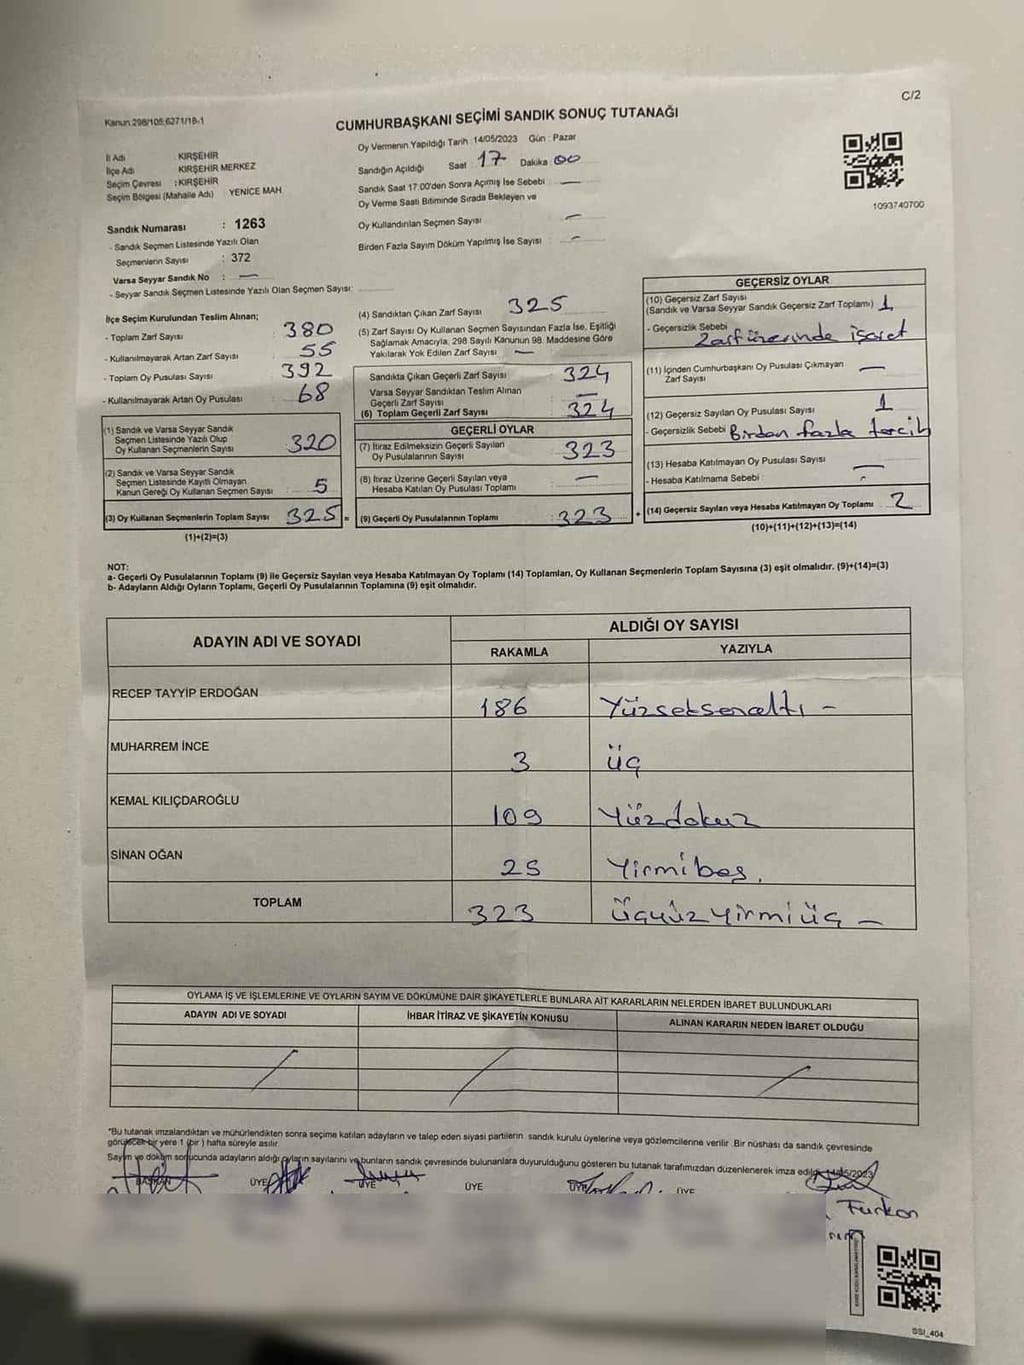 C/2
Kanun:298/105;6271/18-1
CUMHURBAŞKANI SEÇİMİ SANDIK SONUÇ TUTANAĞI
İl Adı KIRŞEHİR
İlçe Adı KIRŞEHİR MERKEZ
Seçim Çevresi : KIRŞEHİR
Seçim Bölgesi (Mahalle Adı) YENİCE MAH.
Sandık Numarası : 1263
- Sandık Seçmen Listesinde Yazılı Olan
Seçmenlerin Sayısı : 372
Varsa Seyyar Sandık No : —
- Seyyar Sandık Seçmen Listesinde Yazılı Olan Seçmen Sayısı:
Oy Vermenin Yapıldığı Tarih : 14/05/2023 Gün : Pazar
Sandığın Açıldığı Saat 17 Dakika 00
Sandık Saat 17:00'den Sonra Açımış İse Sebebi —
Oy Verme Saati Bitiminde Sırada Bekleyen ve
Oy Kullandırılan Seçmen Sayısı —
Birden Fazla Sayım Döküm Yapılmış İse Sayısı —
1093740700
İlçe Seçim Kurulundan Teslim Alınan;
- Toplam Zarf Sayısı 380
- Kullanılmayarak Artan Zarf Sayısı 55
- Toplam Oy Pusulası Sayısı 392
- Kullanılmayarak Artan Oy Pusulası 68
(1) Sandık ve Varsa Seyyar Sandık
Seçmen Listesinde Yazılı Olup
Oy Kullanan Seçmenlerin Sayısı 320
(2) Sandık ve Varsa Seyyar Sandık
Seçmen Listesinde Kayıtlı Olmayan
Kanun Gereği Oy Kullanan Seçmen Sayısı 5
(3) Oy Kullanan Seçmenlerin Toplam Sayısı 325 =
(1)+(2)=(3)
(4) Sandıktan Çıkan Zarf Sayısı 325
(5) Zarf Sayısı Oy Kullanan Seçmen Sayısından Fazla İse, Eşitliği
Sağlamak Amacıyla, 298 Sayılı Kanunun 98. Maddesine Göre
Yakılarak Yok Edilen Zarf Sayısı —
Sandıkta Çıkan Geçerli Zarf Sayısı 324
Varsa Seyyar Sandıktan Teslim Alınan
Geçerli Zarf Sayısı —
(6) Toplam Geçerli Zarf Sayısı 324
GEÇERLİ OYLAR
(7) İtiraz Edilmeksizin Geçerli Sayılan
Oy Pusulalarının Sayısı 323
(8) İtiraz Üzerine Geçerli Sayılan veya
Hesaba Katılan Oy Pusulası Toplamı —
(9) Geçerli Oy Pusulalarının Toplamı 323 +
GEÇERSİZ OYLAR
(10) Geçersiz Zarf Sayısı
(Sandık ve Varsa Seyyar Sandık Geçersiz Zarf Toplamı) 1
- Geçersizlik Sebebi Zarf üzerinde işaret
(11) İçinden Cumhurbaşkanı Oy Pusulası Çıkmayan
Zarf Sayısı —
(12) Geçersiz Sayılan Oy Pusulası Sayısı 1
- Geçersizlik Sebebi Birden fazla tercih
(13) Hesaba Katılmayan Oy Pusulası Sayısı —
- Hesaba Katılmama Sebebi -
(14) Geçersiz Sayılan veya Hesaba Katılmayan Oy Toplamı 2
(10)+(11)+(12)+(13)=(14)
NOT:
a- Geçerli Oy Pusulalarının Toplamı (9) ile Geçersiz Sayılan veya Hesaba Katılmayan Oy Toplamı (14) Toplamları, Oy Kullanan Seçmenlerin Toplam Sayısına (3) eşit olmalıdır. (9)+(14)=(3)
b- Adayların Aldığı Oyların Toplamı, Geçerli Oy Pusulalarının Toplamına (9) eşit olmalıdır.
ADAYIN ADI VE SOYADI ALDIĞI OY SAYISI
RAKAMLA YAZIYLA
RECEP TAYYİP ERDOĞAN 186 Yüzseksenaltı -
MUHARREM İNCE 3 üç
KEMAL KILIÇDAROĞLU 109 Yüzdokuz
SİNAN OĞAN 25 Yirmibeş.
TOPLAM 323 Üçyüzyirmiüç -
OYLAMA İŞ VE İŞLEMLERİNE VE OYLARIN SAYIM VE DÖKÜMÜNE DAİR ŞİKAYETLERLE BUNLARA AİT KARARLARIN NELERDEN İBARET BULUNDUKLARI
ADAYIN ADI VE SOYADI İHBAR İTİRAZ VE ŞİKAYETİN KONUSU ALINAN KARARIN NEDEN İBARET OLDUĞU
*Bu tutanak imzalandıktan ve mühürlendikten sonra seçime katılan adayların ve talep eden siyasi partilerin sandık kurulu üyelerine veya gözlemcilerine verilir. Bir nüshası da sandık çevresinde
görülecek bir yere 1 (bir) hafta süreyle asılır.
Sayım ve döküm sonucunda adayların aldığı oyların sayılarını ve bunların sandık çevresinde bulunanlara duyurulduğunu gösteren bu tutanak tarafımızdan düzenlenerek imza edildi. 14/05/2023
BAŞKAN ÜYE ÜYE ÜYE ÜYE ÜYE
Furkan
SSI_404